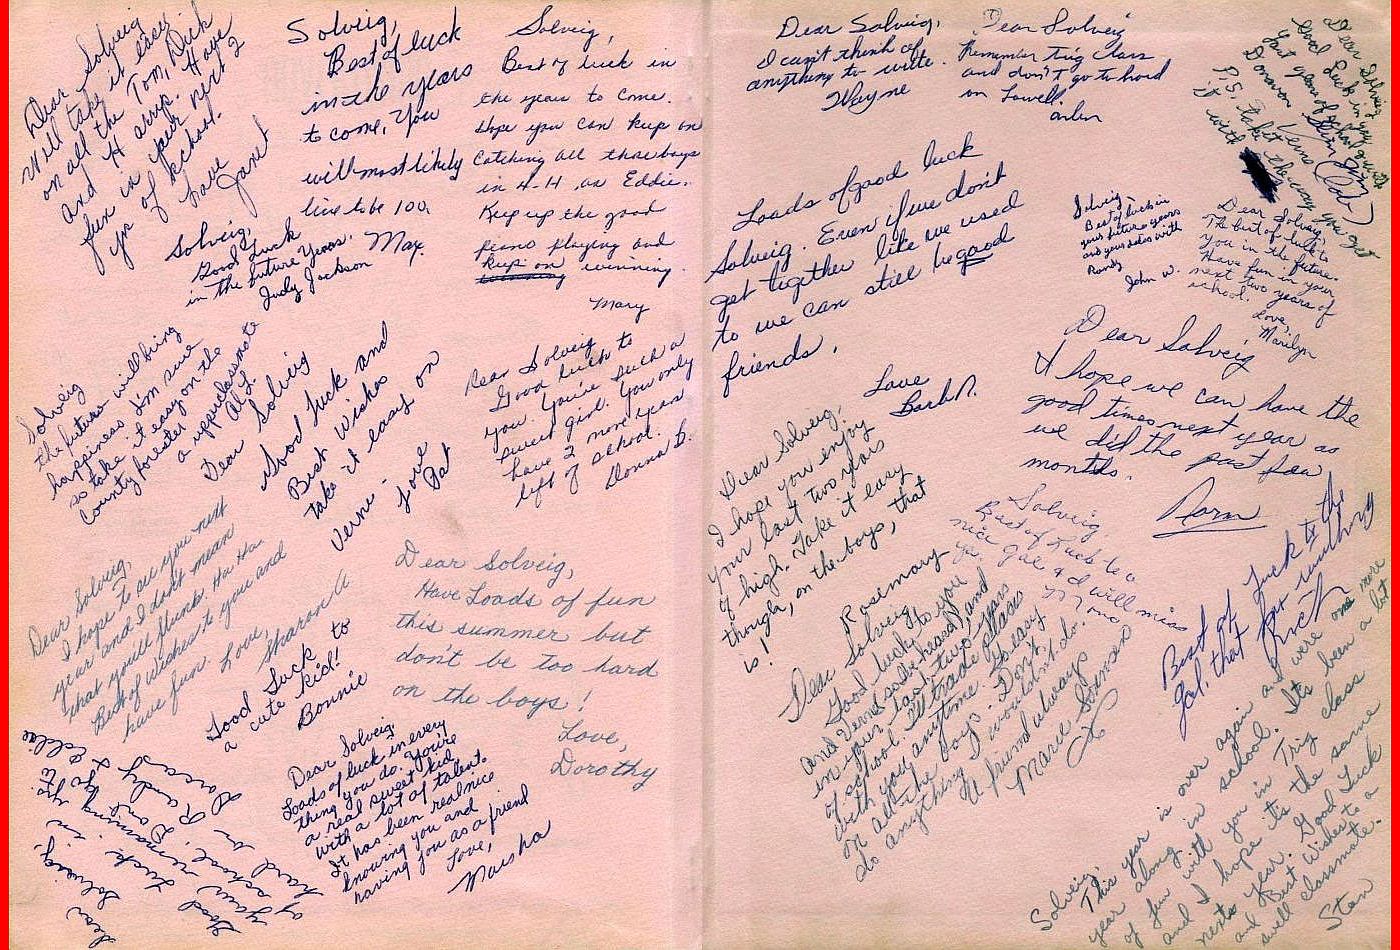 Dear Solveig
Will take it easy
on all the Tom, Dick
and Harry. Have
fun in your next 2
yrs of school.
Love
Janet
Solveig,
Best of luck
in the years
to come, You
will most likely
live to be 100.
Max
Solveig,
Best of luck in
the years to come.
Hope you can keep on
catching all those boys
in 4-H as Eddie.
Keep up the good
piano playing and
keep on winning.
Mary
Solveig,
Good Luck
in the future Years.
Judy Jackson
Solveig
the future will bring
happiness I'm sure
so take it easy on the
County forester
a upperclassmate
Al J.
Dear Solveig
Good luck and
Best Wishes
take it easy on
Verne -
Love
Pat
Dear Solveig
Good luck to
you. You're such a
sweet girl. You only
have 2 more years
left of school.
Donna B.
Dear Solveig,
I hope to see you next
year and I don't mean
that you'll flunk. Ha Ha
Best of Wishes to you and
have fun. Love,
Sharon A
Good Luck to
a cute kid!
Bonnie
Dear Solveig,
Have Loads of fun
this summer but
don't be too hard
on the boys!
Love,
Dorothy
Dear Solveig,
Loads of luck in every
thing you do. You're
a real sweet kid
with a lot of talent.
It has been real nice
knowing you and
having you as a friend
Love,
Marsha
Dear Solveig,
Good Luck in
your remaining yrs
of school. Don't go to
hard on Randy & Eddie
Dear Solveig,
I can't think of
anything to write.
Wayne
Dear Solveig
Remember Trig class
and don't go to hard
on Lowell.
Arlen
Dear Solveig
Good Luck in your next
last years of school
Donavon
P.S. Take it the way you get
it with
Loads of good luck
Solveig. Even if we don't
get together like we used
to we can still be good
friends.
Love
Barb N.
Solveig,
Best of luck in
your future years
and your dates with
Randy
John W.
Dear Solveig,
The best of luck to
you in the future.
Have fun in your
next two years of
school.
Love,
Marilyn
Dear Solveig
I hope we can have the
good times next year as
we did the past few
months.
Norm
Dear Solveig,
I hope you enjoy
your last two years
of high. Take it easy
though, on the boys, that
is!
Rosemary
Solveig,
Best of Luck to a
nice gal & I will miss
ya
Best of Luck to the
gal that has everything
Rich
Dear Solveig,
Good luck to you
and Verne
in your last two years
of school. I'll trade places
with you anytime. Go easy
on all the boys. Don't
do anything I wouldn't do.
A friend always
Marie Sorenson
Solveig,
This year is over again and were one more
year along in school. Its been a lot
of fun with you in Trig class
and I hope it's the same
next year. Good Luck
and Best Wishes to a
swell classmate.
Stan